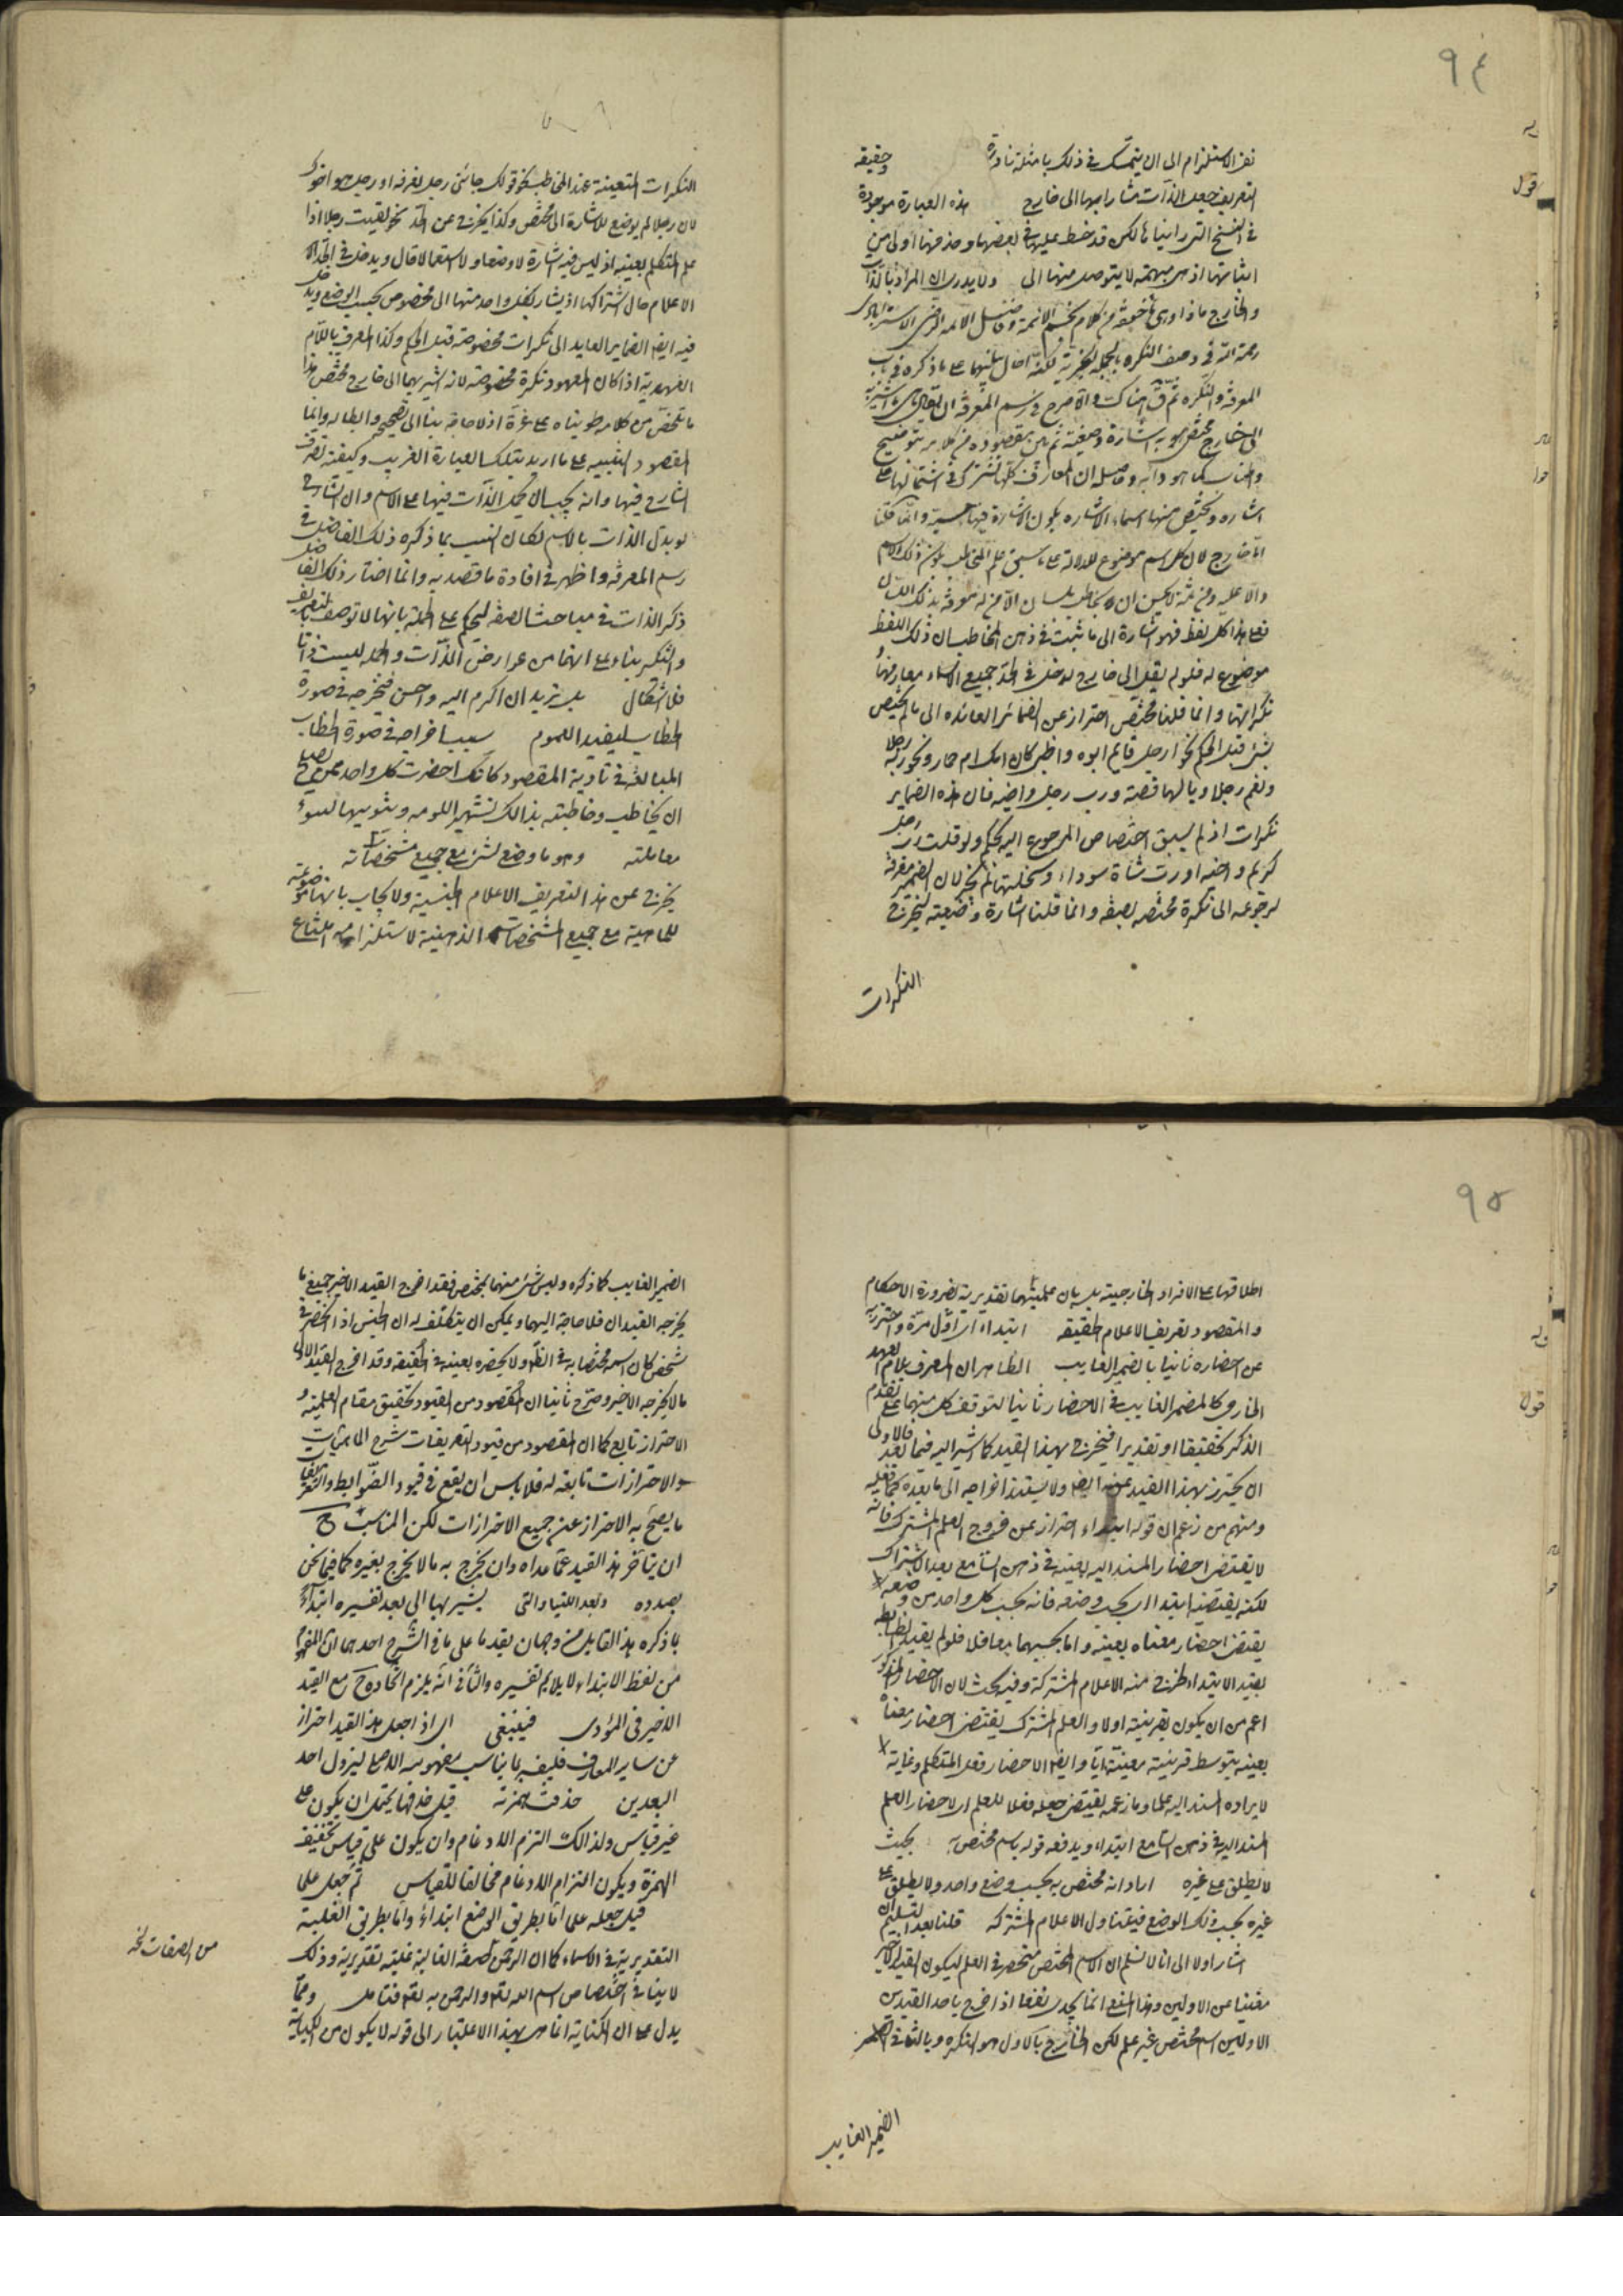 ٩٤
نفى الاستلزام الى ان يتمسك فى ذلك بامثلة نادرة وحقيقة
التعريف جعل الذات مشارا بها الى خارج هذه العبارة موجودة
فى النسخ التى رايناها لكن قد خط عليها فى بعضها وحذفها اولى من
اثباتها اذ هى مبهمة لا يتوصل منها الى ولا يدرى ان المراد بالذات
والخارج ماذا وهى من كلام نجم الائمة وفاضل الامة الرضى الاسترابادى
رحمة الله فى وصف النكرة بالجملة الخبرية لكنه احال على ما ذكره فى باب
المعرفة والنكرة ثم قال هناك والاصرح فى رسم المعرفة ان يقال ما اشير به
الى خارج مختص اشارة وضعية ثم بين مقصوده من كلامه بتوضيح
واطناب كما هو دابه وحاصله ان المعارف كلها تشترك فى اشتمالها على
اشارة ويختص منها اسماء الاشارة بكون الاشارة فيها حسية وانما قلنا
الى خارج لان كل اسم موضوع للدلالة على ما سبق علم المخاطب بكون ذلك الاسم
دالا عليه ومن ثمة لا يحسن ان يخاطب بلسان الا من له معرفة بذلك اللسان
فعلى هذا كل لفظ فهو اشارة الى ما ثبت فى ذهن المخاطب ان ذلك اللفظ
موضوع له فلو لم يقل الى خارج لدخل فى الحد جميع الاسماء معارفها
نكراتها وانما قلنا مختص احترازا عن الضمائر العائدة الى ما لم يختص
بشئ قبل الحكم نحو ارجل قايم ابوه واظبى كان امك ام حمار ونحو ربه رجلا
ونعم رجلا ويا لها قصة ورب رجل واخيه فان هذه الضماير
نكرات اذ لم يسبق اختصاص المرجوع اليه بحكم ولو قلت رب رجل
كريم واخيه او رب شاة سوداء وسخلتها لم يجز لان الضمير معرفة
لرجوعه الى نكرة مختصة بصفة وانما قلنا اشارة وضعية ليخرج
النكرات
النكرات المتعينة عند المخاطب نحو قولك جاءنى رجل تعرفه او رجل هو اخوك
لان رجلا لم يوضع للاشارة الى مختص وكذا يخرج عن الحد نحو لقيت رجلا اذا
علم المتكلم بعينه اذ ليس فيه اشارة لا وضعا ولا استعمالا قال ويدخل فى الحد
الاعلام حال اشتراكها اذ يشار بكل واحد منها الى مخصوص بحسب الوضع ويدخل
فيه ايضا الضماير العايدة الى نكرات مخصوصة قبل الحكم وكذا المعرف باللام
العهدية اذا كان المعهود نكرة مخصوصة لانه اشير بها الى خارج مختص هذا
ما تلخص من كلامه طويناه على غره اذ لا حاجة بنا الى تصحيحه وابطاله وانما
المقصود التنبيه على ما اريد بتلك العبارة الغريب وكيفية تصرف
الشارح فيها وانه يجب ان يحمل الذات فيها على الاسم وان الشارح
لو بدل الذات بالاسم لكان انسب بما ذكره ذلك الفاضل فى
رسم المعرفة واظهر فى افادة ما قصد به وانما اختار ذلك الفاضل
ذكر الذات فى مباحث الصفة ليحكم على الجملة بانها لا توصف بالتعريف
والتنكير بناء على انهما من عوارض الذات والجملة ليست ذاتا
فلا اشكال بل تريد ان اكرم اليه واحسن فتخرجه فى صورة
الخطاب ليفيد العموم سبب اخراجه فى صورة الخطاب
المبالغة فى تادية المقصود كانك احضرت كل واحد ممن يصلح
ان يخاطب وخاطبته بذالك لتشهير اللومه وتنويها لسوء
معاملته وهو ما وضع لشئ مع جميع مشخصاته
يخرج عن هذا التعريف الاعلام الجنسية ولا يجاب بانها موضوعة
للماهية مع جميع المشخصات الذهنية لاستلزامه امتناع
٩٥
اطلاقها على الافراد الخارجية بل بان علميتها تقديرية لضرورة الاحكام
والمقصود تعريف الاعلام الحقيقة ابتداء اى اول مرة واحترز به
عن احضاره ثانيا بالضمير الغايب الظاهر ان المعرف بلام العهد
الخارجى كالمضمر الغايب فى الاحضار ثانيا لتوقف كل منهما على تقدم
الذكر تحقيقا او تقديرا فيخرج بهذا القيد كما اشير اليه فيما بعد فالاولى
ان يحترز بهذا القيد عنه ايضا ولا يسند اخراجه الى ما بعده كما فعليه
ومنهم من زعم ان قوله ابتداء احتراز عن خروج العلم المشترك فانه
لا يقتضى احضار المسند اليه بعينه فى ذهن السامع بعد الاشتراك
لكنه يقتضيه ابتداء اى بحسب وضعه فانه بحسب كل واحد من وضعه
يقتضى احضار معناه بعينه واما بحسبهما معا فلا فلو لم يقيد الضابطة
بقيد الابتداء لخرج منه الاعلام المشتركة وفيه بحث لان الاحضار المذكور
اعم من ان يكون بقرينة اولا والعلم المشترك يقتضى احضار معناه
بعينه بتوسط قرينة معينة اياه وايضا الاحضار فعل المتكلم وغاية
لايراده المسند اليه علما وما زعمه يقتضى جعله فعلا للعلم اى لاحضار العلم
المسند اليه فى ذهن السامع ابتداء ويدفعه قوله باسم مختص به بحيث
لا يطلق على غيره اراد انه مختص به بحسب وضع واحد ولا يطلق على
غيره بحسب ذلك الوضع فيتناول الاعلام المشتركة قلنا بعد التسليم
اشار اولا الى انا لا نسلم ان الاسم المختص منحصر فى العلم ليكون القيد الاخير
مغنيا عن الاولين وهذا المنع انما يجدى نفعا اذا خرج باحد القيدين
الاولين اسم مختص غير علم لكن الخارج بالاول هو النكرة وبالثانى الضمير
الضمير الغايب
الضمير الغايب كما ذكره وليس شئ منهما بمختص فقد اخرج القيد الاخير جميع ما
يخرجه القيدان فلا حاجة اليهما ويمكن ان يتكلف له ان الجنس اذا انحصر فى
شخص كان اسمه مختصا به فى الظاهر ولا يحضره بعينه فى الحقيقة وقد اخرج القيد الاول
ما لا يخرجه الاخير وصرح ثانيا ان المقصود من القيود تحقيق مقام العلمية و
الاحتراز تابع كما ان المقصود من قيود التعريفات شرح الماهيات
والاحترازات تابعة له فلا باس ان يقع فى قيود الضوابط والتعريفات
ما يصح به الاحتراز عن جميع الاحترازات لكن المناسب ح
ان يتاخر هذا القيد عما عداه وان يخرج به ما لا يخرج بغيره كما فيما نحن
بصدده وبعد اللتيا والتى يشير بها الى بعد تفسيره ابتداء
بما ذكره هذا القايل من وجهان بعد ما على ما فى الشرح احدهما ان المفهوم
من لفظ الابتداء لا يلايم تفسيره والثانى انه يلزم اتحاده ح مع القيد
الاخير فى المؤدى فينبغى اى اذا جعل هذا القيد احتراز
عن ساير المعارف فليفسر بما يناسب مفهومه الاصلى ليزول احد
البعدين حذفت الهمزة قيل حذفها يحتمل ان يكون على
غير قياس ولذالك التزم الادغام وان يكون على قياس تخفيف
الهمزة ويكون التزام الادغام مخالفا للقياس ثم جعل علما
قيل جعله علما اما بطريق الوضع ابتداء واما بطريق الغلبة
التقديرية فى الاسماء كما ان الرحمن صفة الغالبة غلبة تقديرية وذلك
لا ينافى اختصاص اسم الله تعالى والرحمن به تعالى فتامل ومما
يدل على ان الكناية انما هى بهذا الاعتبار الى قوله لا يكون من الكناية
من الصفات نخه